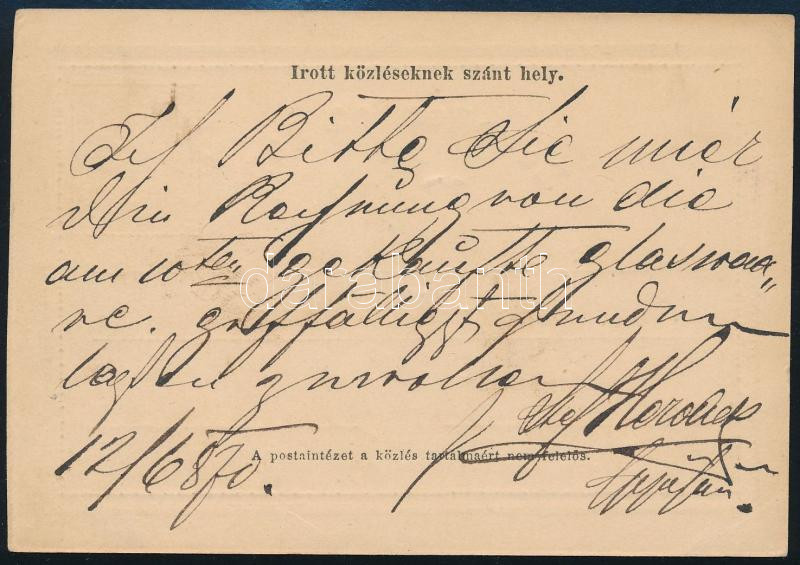 Irott közléseknek szánt hely.
Ich Bitte Sie mier
die Rechnung von die
am 10ten gekaufte glaswaa„
re. gefälligst
lassen zu wollen
12/6 870.
A postaintézet a közlés tartalmaért nem felelős.
darabanth